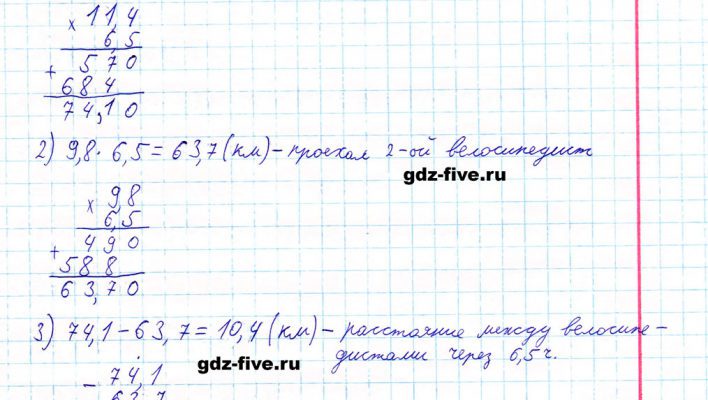 × 11,4
6,5
+ 570
684
74,10
2) 9,8 · 6,5 = 63,7 (км) – проехал 2-ой велосипедист
gdz-five.ru
× 9,8
6,5
+ 490
588
63,70
3) 74,1 – 63,7 = 10,4 (км) – расстояние между велосипе-
дистами через 6,5 ч.
gdz-five.ru
– 74,1
63,7